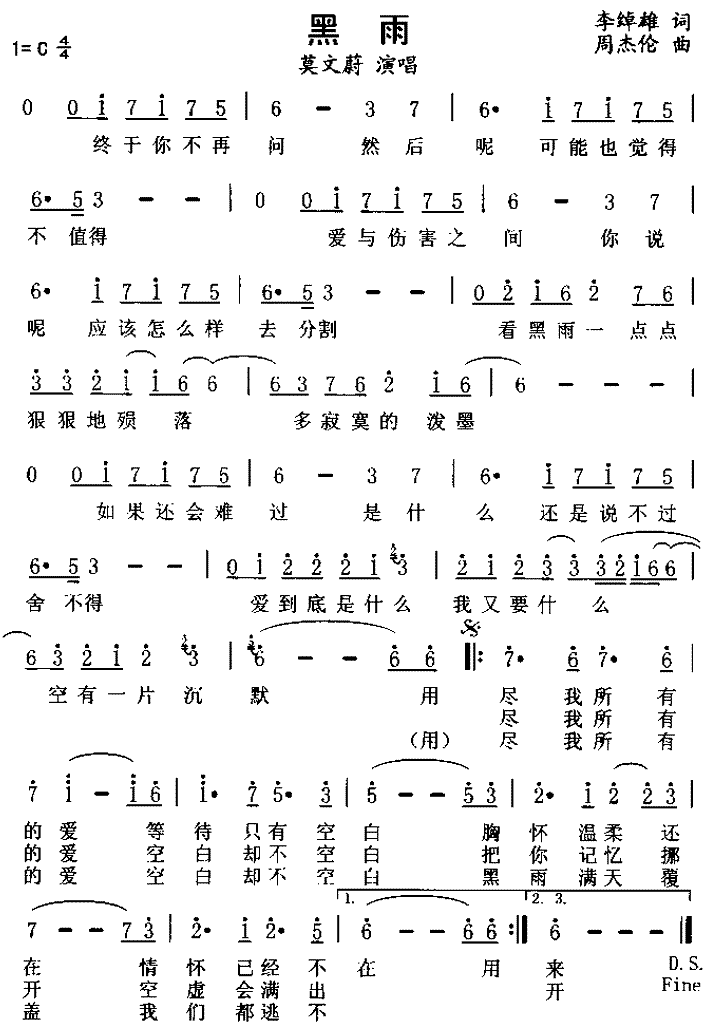 黑 雨
李绰雄 词
1= C 4/4
周杰伦 曲
莫文蔚 演唱
0 0 1 7 1 7 5 | 6 － 3 7 | 6· 1 7 1 7 5 |
终于你不再 问 然 后 呢 可能也觉得
6· 5 3 － － | 0 0 1 7 1 7 5 | 6 － 3 7 |
不 值得 爱与伤害之 间 你 说
6· 1 7 1 7 5 | 6· 5 3 － － | 0 2 1 6 2 7 6 |
呢 应该怎么样 去 分割 看黑雨一 点点
3 3 2 1 1 6 6 | 6 3 7 6 2 1 6 | 6 － － － |
狠狠地殒 落 多寂寞的 泼墨
0 0 1 7 1 7 5 | 6 － 3 7 | 6· 1 7 1 7 5 |
如果还会难 过 是 什 么 还是说不过
6· 5 3 － － | 0 1 2 2 2 1 3 | 2 1 2 3 3 3 2 1 6 6 |
舍 不得 爱到底是什么 我又要什 么
6 3 2 1 2 3 | 6 － － 6 6 ‖: 7· 6 7· 6 |
空有一片 沉 默 用 尽 我所 有
尽 我所 有
(用) 尽 我所 有
7 1 － 1 6 | 1· 7 5· 3 | 5 － － 5 3 | 2· 1 2 2 3 |
的 爱 等 待 只 有 空 白 胸 怀 温 柔 还
的 爱 空 白 却 不 空 白 把 你 记 忆 挪
的 爱 空 白 却 不 空 白 黑 雨 满 天 覆
1. 2. 3.
7 － － 7 3 | 2· 1 2· 5 | 6 － － 6 6 :‖ 6· － － |
在 情 怀 已 经 不 在 用 来 D.S.
开 空 虚 会 满 出 开 Fine
盖 我 们 都 逃 不